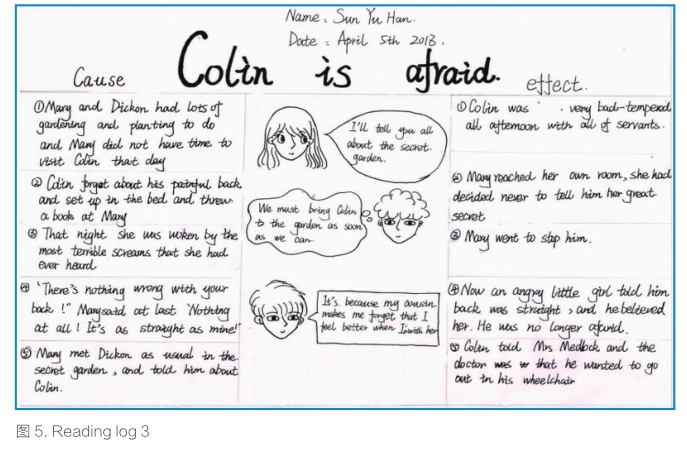 Name: Sun Yu Han.
Date: April 5th 2013.
Colin is afraid.
Cause
① Mary and Dickon had lots of
gardening and planting to do
and Mary did not have time to
visit Colin that day
② Colin forget about his painful back
and set up in the bed and threw
a book at Mary
③ That night she was woken by the
most terrible screams that she had
ever heard
④ "There's nothing wrong with your
back!" Mary said at last "Nothing
at all! It's as straight as mine!"
⑤ Mary met Dickon as usual in the
secret garden, and told him about
Colin.
I'll tell you all
about the secret
garden.
We must bring Colin
to the garden as soon
as we can.
It's because my cousin
makes me forget that I
feel better when I with her
effect.
① Colin was very bad-tempered
all afternoon with all of servants.
② Mary reached her own room, she had
decided never to tell him her great
secret
③ Mary went to stop him.
④ Now an angry little girl told him
back was straight, and he believed
her. He was no longer afraid.
⑤ Colin told Mrs Medlock and the
doctor that he wanted to go
out in his wheelchair
图 5. Reading log 3